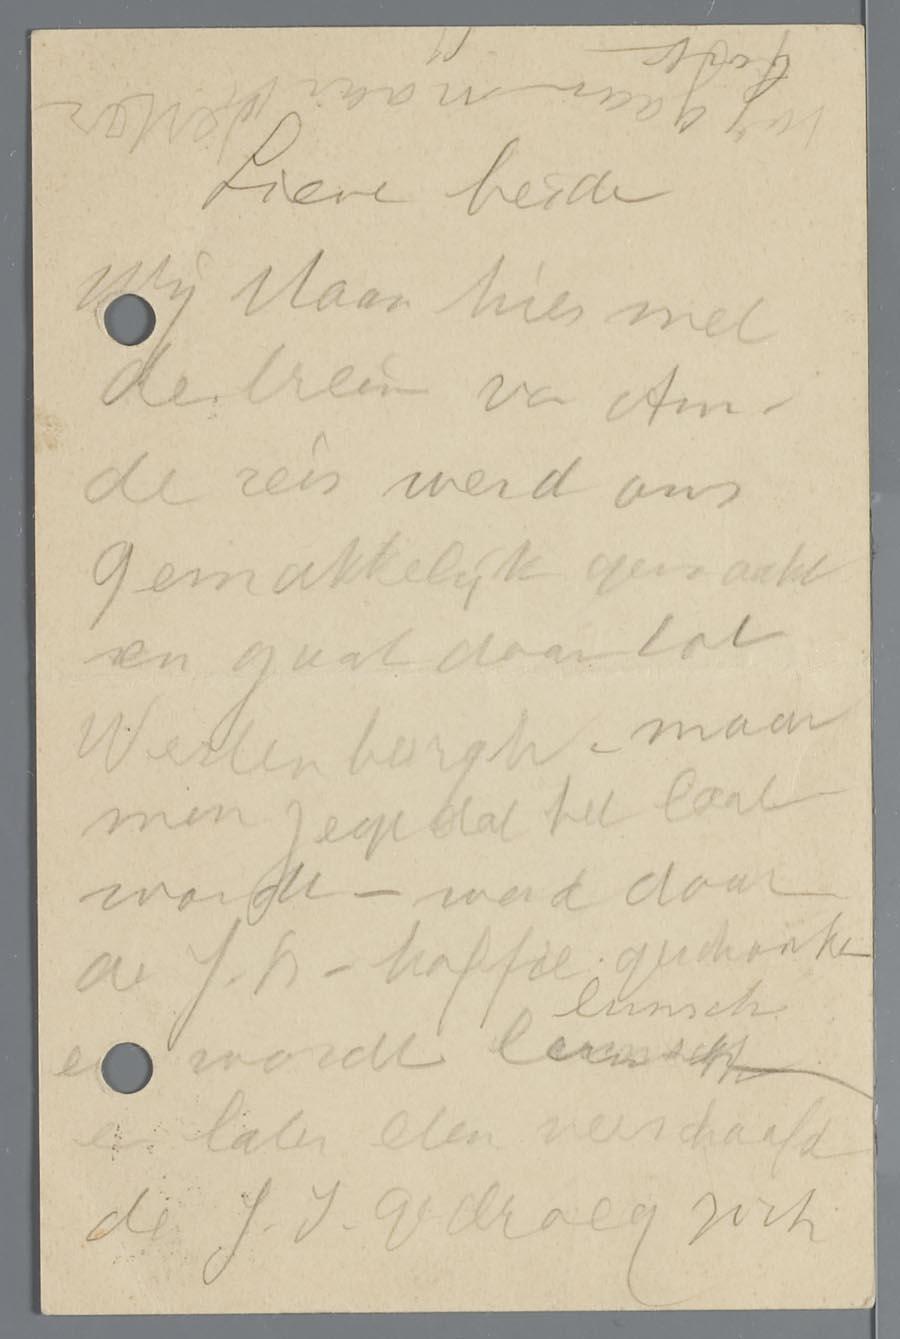 Lieve beide
Wij staan hier met
de trein va Am-
de reis werd ons
gemakkelijk gemaakt
en gaat door tot
Westenborgh - maar
men zegt dat het laat
wordt - werd door
de J.R - koffie gedronke
en wordt lunsch
en later eten verschaafd
de J.J. gedroeg zich
wij gaan naar